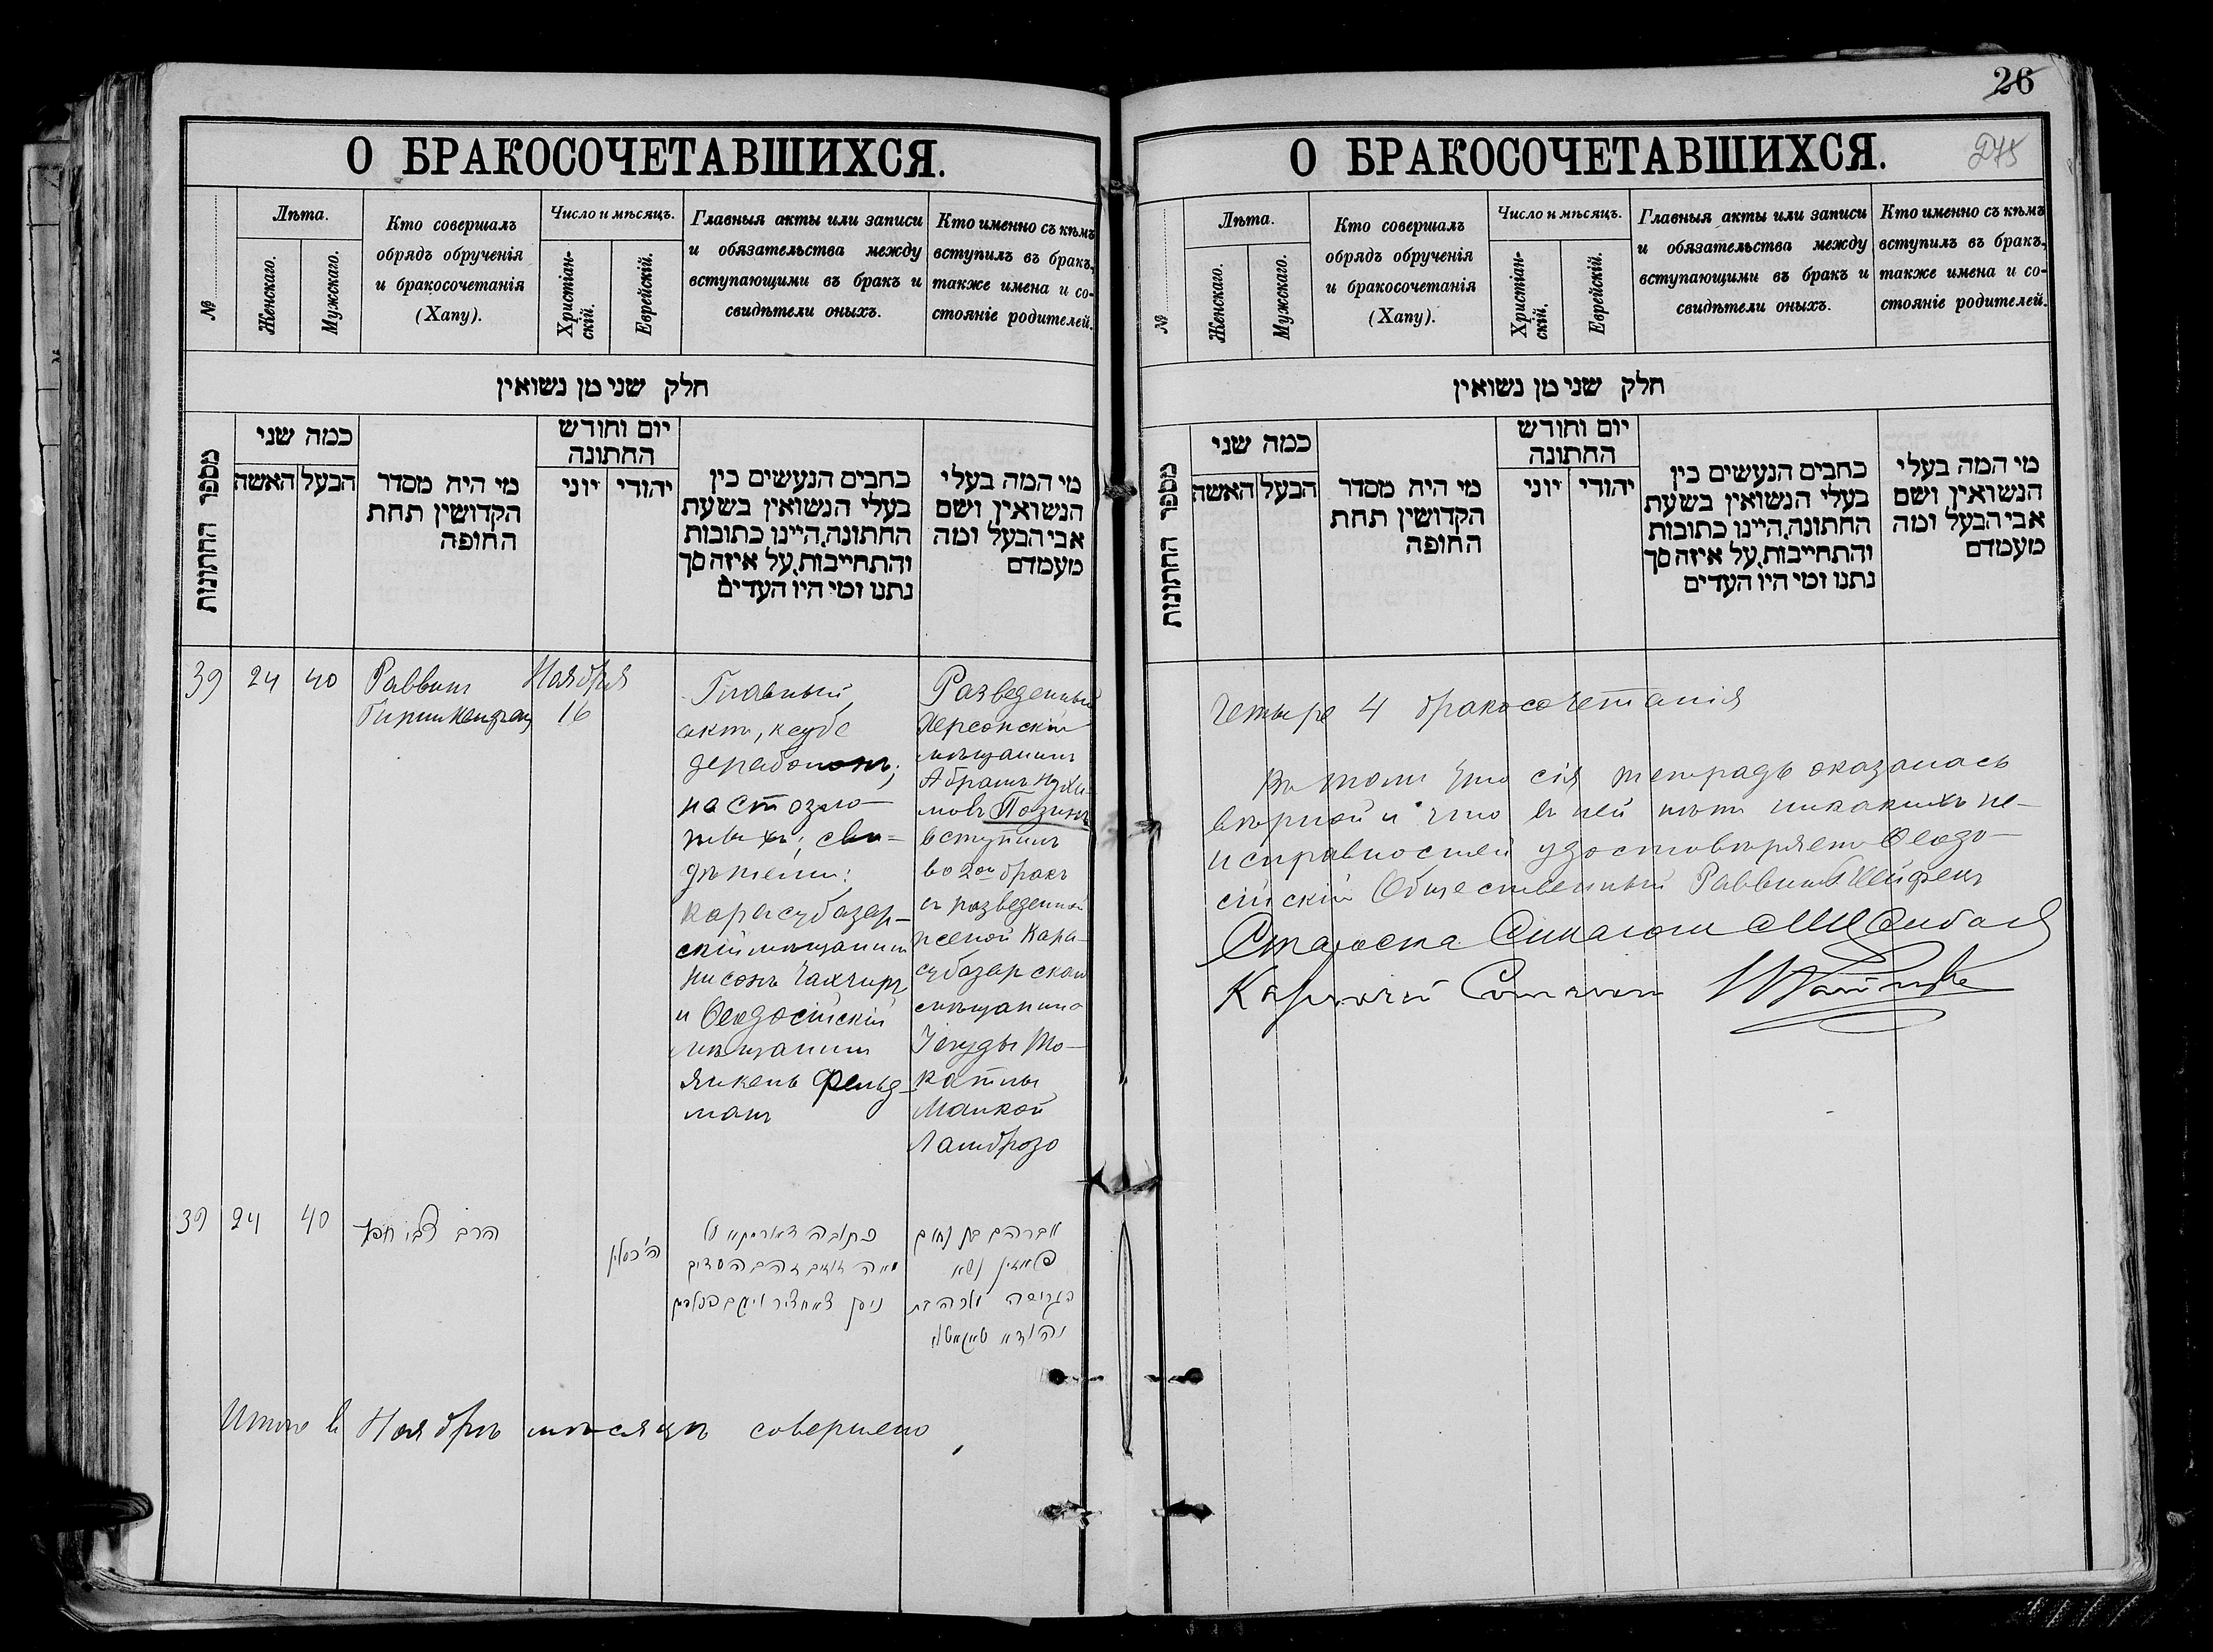 О БРАКОСОЧЕТАВШИХСЯ.
№
Лѣта.
Женскаго.
Мужскаго.
Кто совершалъ
обрядъ обрученія
и бракосочетанія
(Хапу).
Число и мѣсяцъ.
Христіан-
скій.
Еврейскій.
Главныя акты или записи
и обязательства между
вступающими въ бракъ и
свидѣтели оныхъ.
Кто именно съ кѣмъ
вступилъ въ бракъ,
также имена и со-
стояніе родителей.
חלק שני מן נשואין
מספר החתונות
כמה שני
הבעל האשה
מי היה מסדר
הקדושין תחת
החופה
יום וחודש
החתונה
יהודי יוני
כתבים הנעשים בין
בעלי הנשואין בשעת
החתונה, היינו כתובות
והתחייבות, על איזה סך
נתנו ומי היו העדים
מי המה בעלי
הנשואין ושם
אבי הבעל ומה
מעמדם
39 24 40
Раввинъ
Ноября
16
Главный
актъ, кеубе
дерабонъ;
на сто зло-
тыхъ; сви-
дѣтели:
Карасубазар-
скій мѣщанинъ
Нисонъ
и Ѳеодосійскій
мѣщанинъ
Янкель Фельд-
манъ
Разведенный
Херсонскій
мѣщанинъ
Абрамъ Нухи-
мовъ Позинъ
вступилъ
во 2ой бракъ
съ разведенной
женой Кара-
субазарскаго
мѣщанина
Іегуды То-
катлы
Малкой
Ламброзо
39 24 40
הרב
ה' כסלו
כתובה דאורייתא על
מאה זוזים והעדים
ניסן
אברהם בן נחום
פאזין נשא
הגרושה מלכה בת
יהודא טאקאטלי
Итого въ Ноябрѣ мѣсяцѣ совершено
26
275
О БРАКОСОЧЕТАВШИХСЯ.
№
Лѣта.
Женскаго.
Мужскаго.
Кто совершалъ
обрядъ обрученія
и бракосочетанія
(Хапу).
Число и мѣсяцъ.
Христіан-
скій.
Еврейскій.
Главныя акты или записи
и обязательства между
вступающими въ бракъ и
свидѣтели оныхъ.
Кто именно съ кѣмъ
вступилъ въ бракъ,
также имена и со-
стояніе родителей.
חלק שני מן נשואין
מספר החתונות
כמה שני
הבעל האשה
מי היה מסדר
הקדושין תחת
החופה
יום וחודש
החתונה
יהודי יוני
כתבים הנעשים בין
בעלי הנשואין בשעת
החתונה, היינו כתובות
והתחייבות, על איזה סך
נתנו ומי היו העדים
מי המה בעלי
הנשואין ושם
אבי הבעל ומה
מעמדם
Четыре 4 бракосочетанія
Въ томъ что сія тетрадь оказалась
вѣрной и что въ ней нѣтъ никакихъ не-
исправностей удостовѣряетъ Ѳеодо-
сійскій Общественный Раввинъ
Староста Синагоги